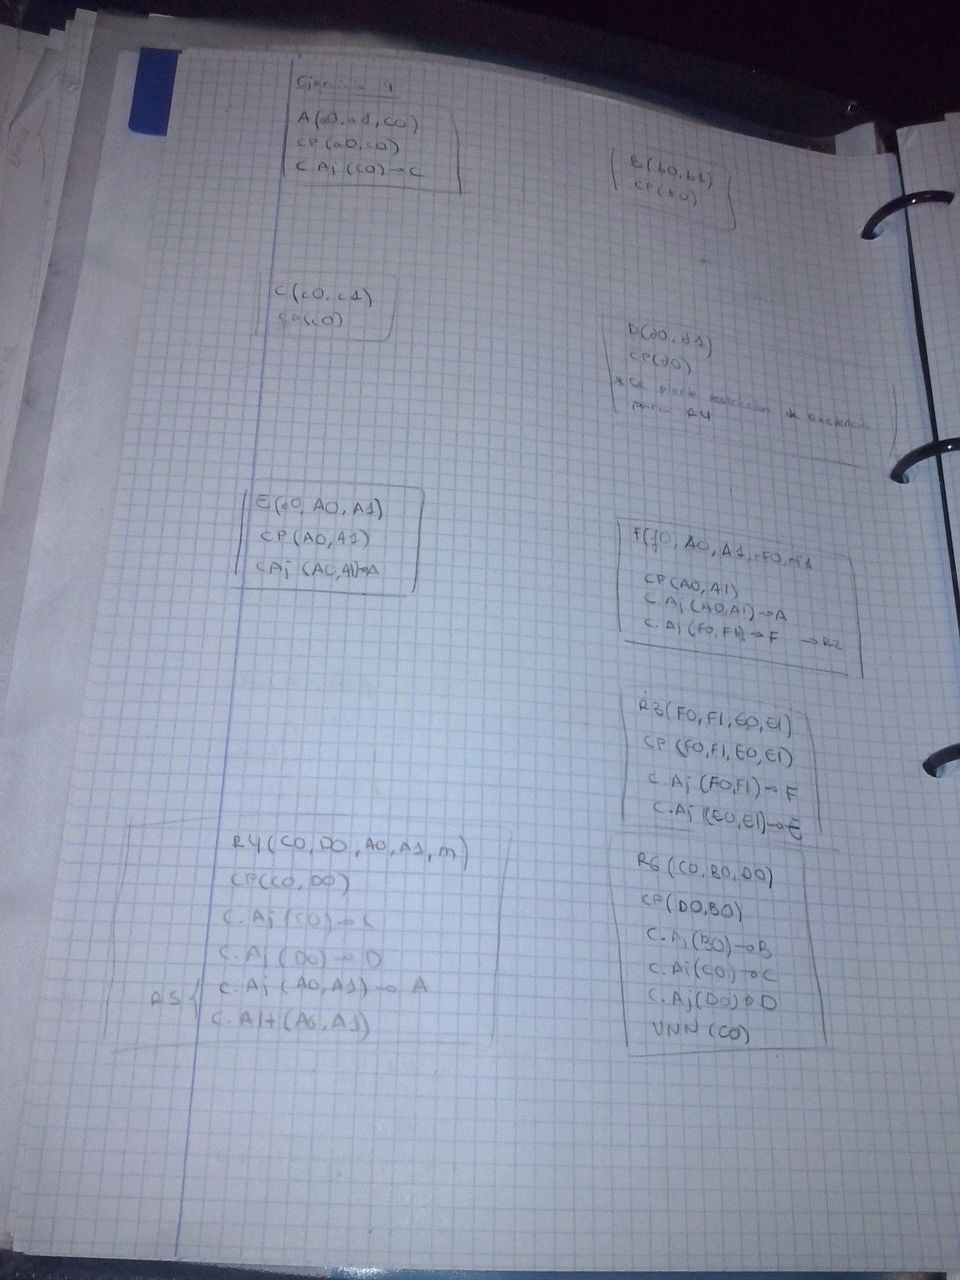 Ejercicio 4
A(a0,a1,c0)
CP(a0,c0)
C.Aj(c0)→C
B(b0,b1)
CP(b0)
C(c0,c1)
CP(c0)
D(d0,d1)
CP(d0)
* Se pierde restricción de existencia
para R4
E(e0, A0, A1)
CP(A0,A1)
C.Aj(A0,A1)→A
F(f0, A0, A1, F0, F1
CP(A0,A1)
C.Aj(A0,A1)→A
C.Aj(F0,F1)→F →R2
R3(F0,F1,E0,E1)
CP(F0,F1,E0,E1)
C.Aj(F0,F1)→F
C.Aj(E0,E1)→E
R4(C0,D0,A0,A1,m)
CP(C0,D0)
C.Aj(C0)→C
C.Aj(D0)→D
R5{ C.Aj(A0,A1)→A
C.Alt(A0,A1)
R6(C0,B0,D0)
CP(D0,B0)
C.Aj(B0)→B
C.Aj(C0)→C
C.Aj(D0)→D
VNN(C0)